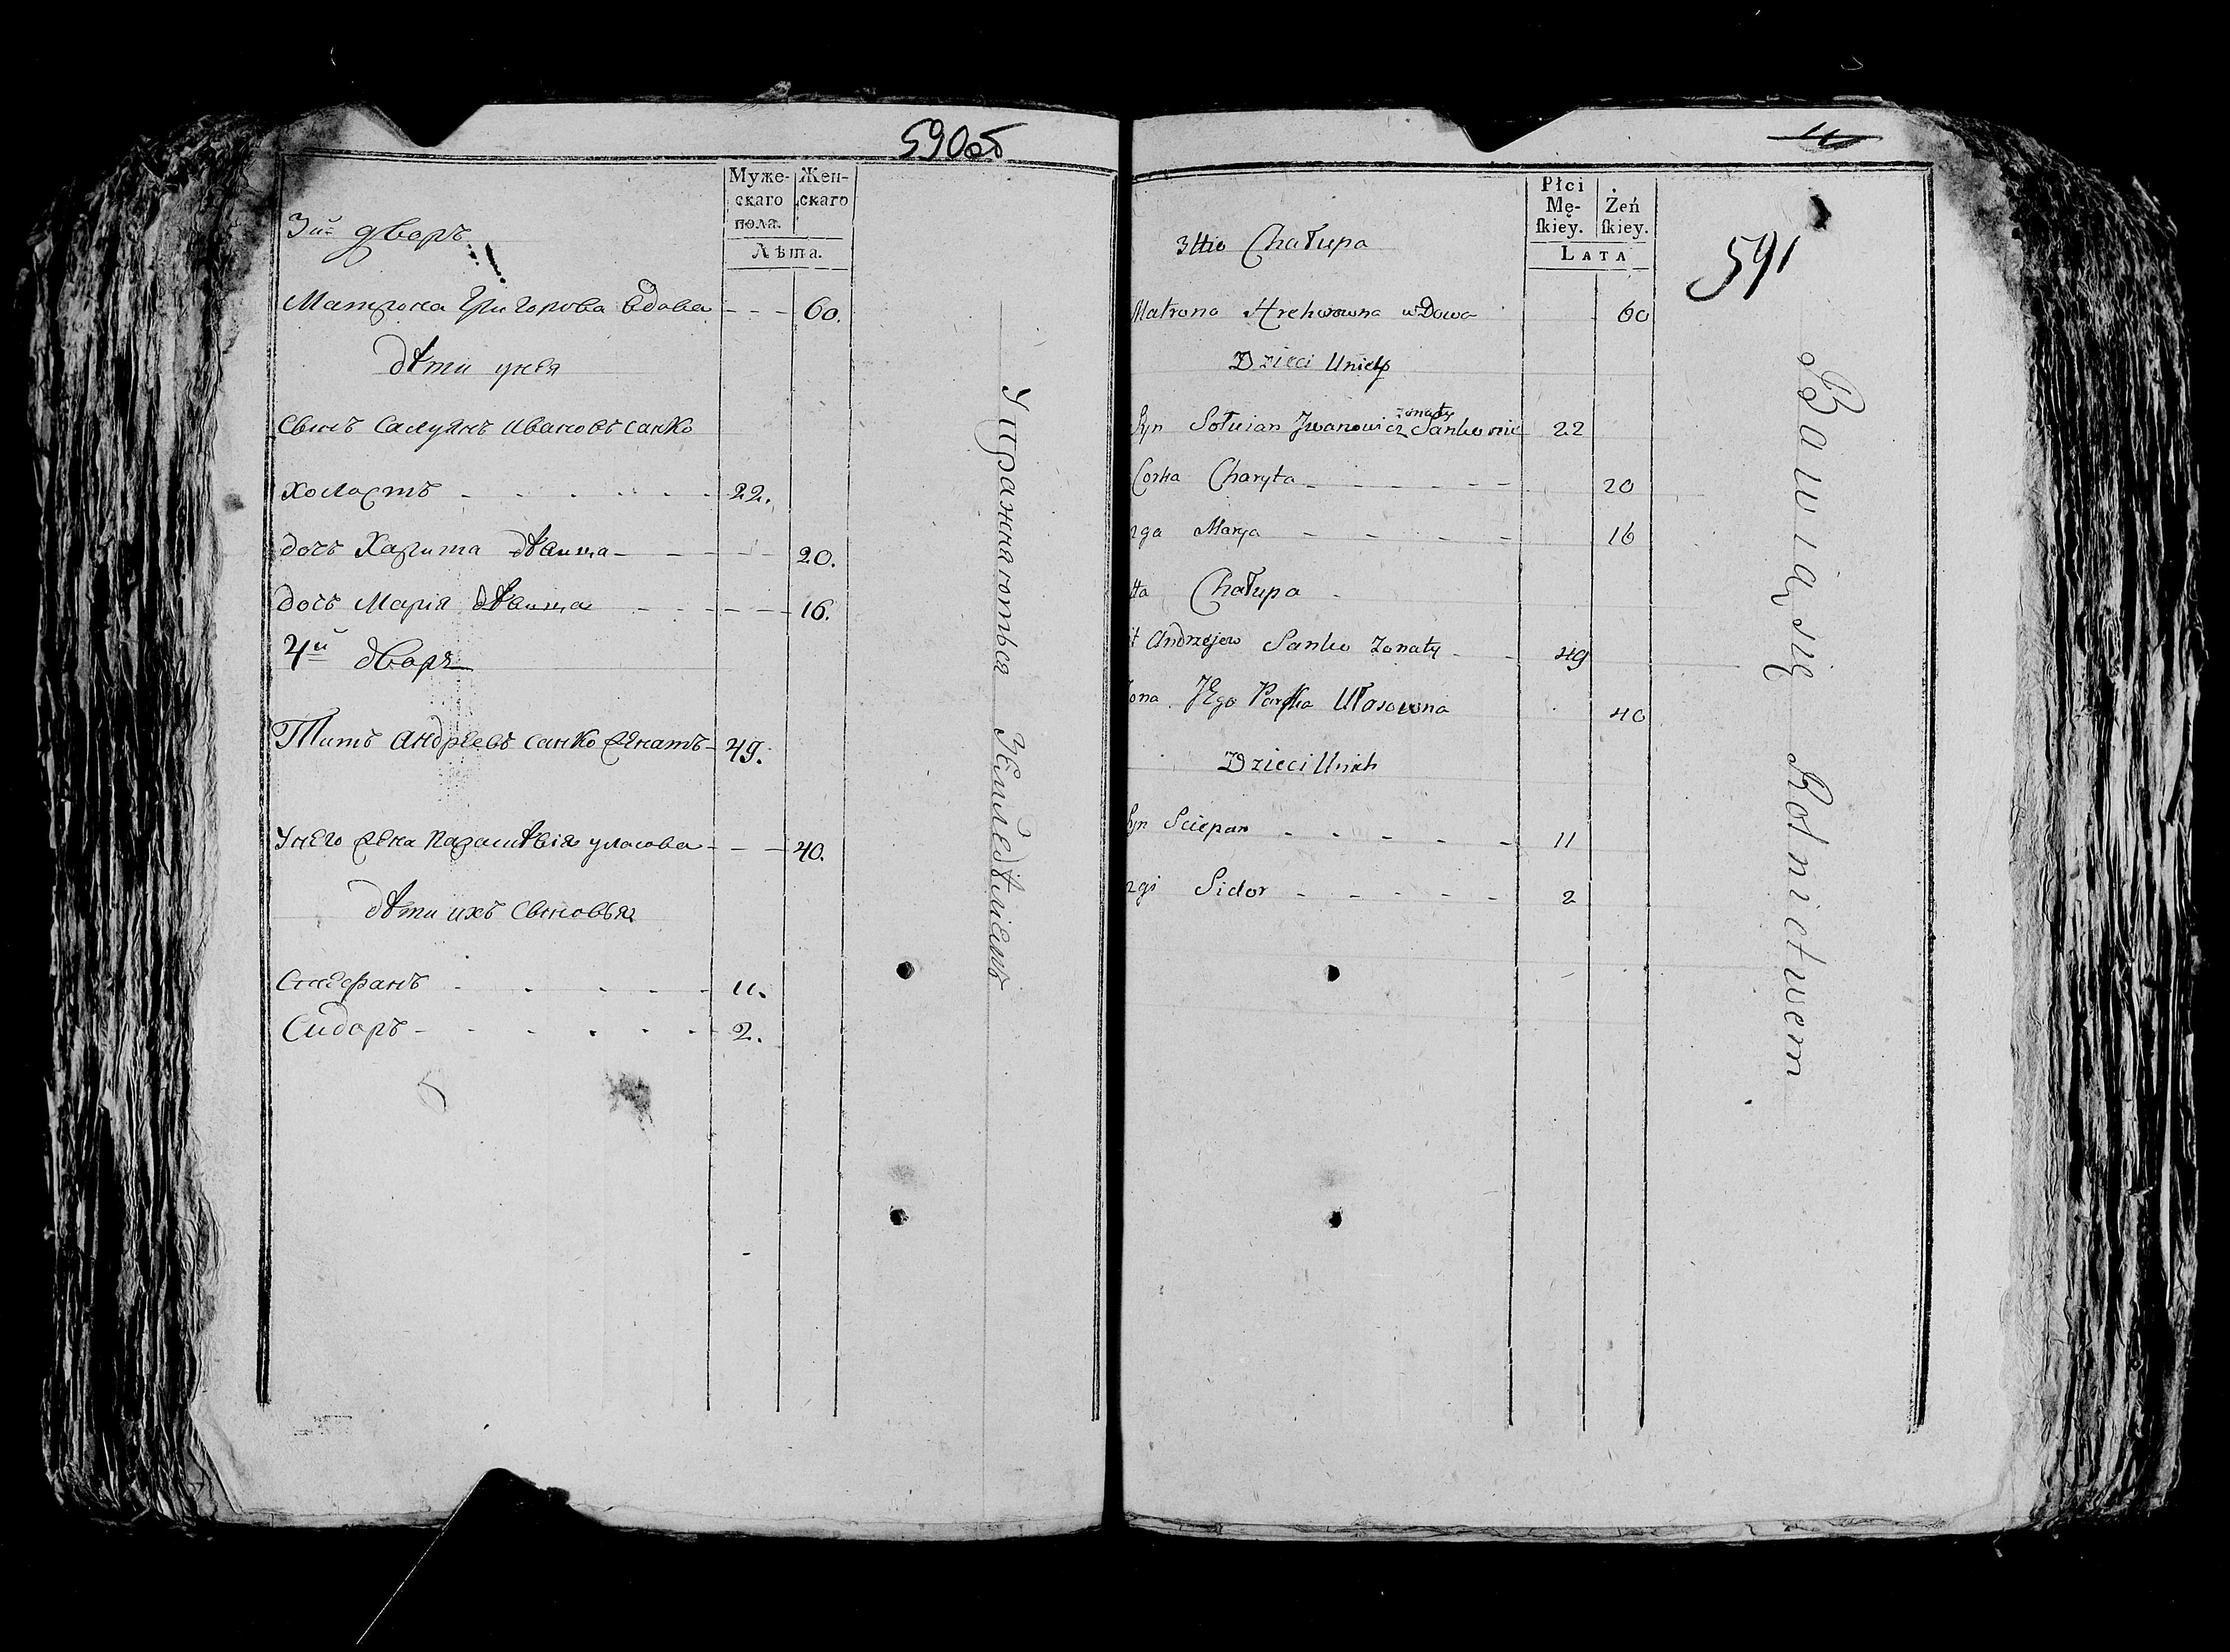 590об
Муже-
скаго
пола.
Жен-
скаго
Лѣта.
3й дворъ
Матрона Григорова вдова - - - 60.
дѣти у нея
Сынъ Салуянъ Ивановъ Санко
холостъ - - - - - - 22.
дочъ Харита дѣвица - - - - - 20.
дочъ Марія дѣвица - - - - - 16.
4й дворъ
Титъ Андреевъ Санко женатъ - 49.
У него жена Параскѣвія Уласова - - - 40.
дѣти ихъ Сыновья
Стефанъ - - - - - 11.
Сидоръ - - - - - - 2.
Упражнаються Земледѣлiемъ
4
591
Płci
Mę-
ſkiey.
Żeń
ſkiey.
LATA
3tio Chałupa
Matrona Hrehorowna wDowa 60
Dzieci Unieÿ
żonaty
Syn Sołuian Jwanowicz Sanko 22
Corka Charyta - - - - - - 20
Marya - - - - - 16
Chałupa -
Andrzejew Sanko Zonaty - - 49
Jego Ułasowna 40
Dzieci Unich
Sciepan - - - - - - 11
Sidor - - - - - - 2
Bawią się Rolnictwem